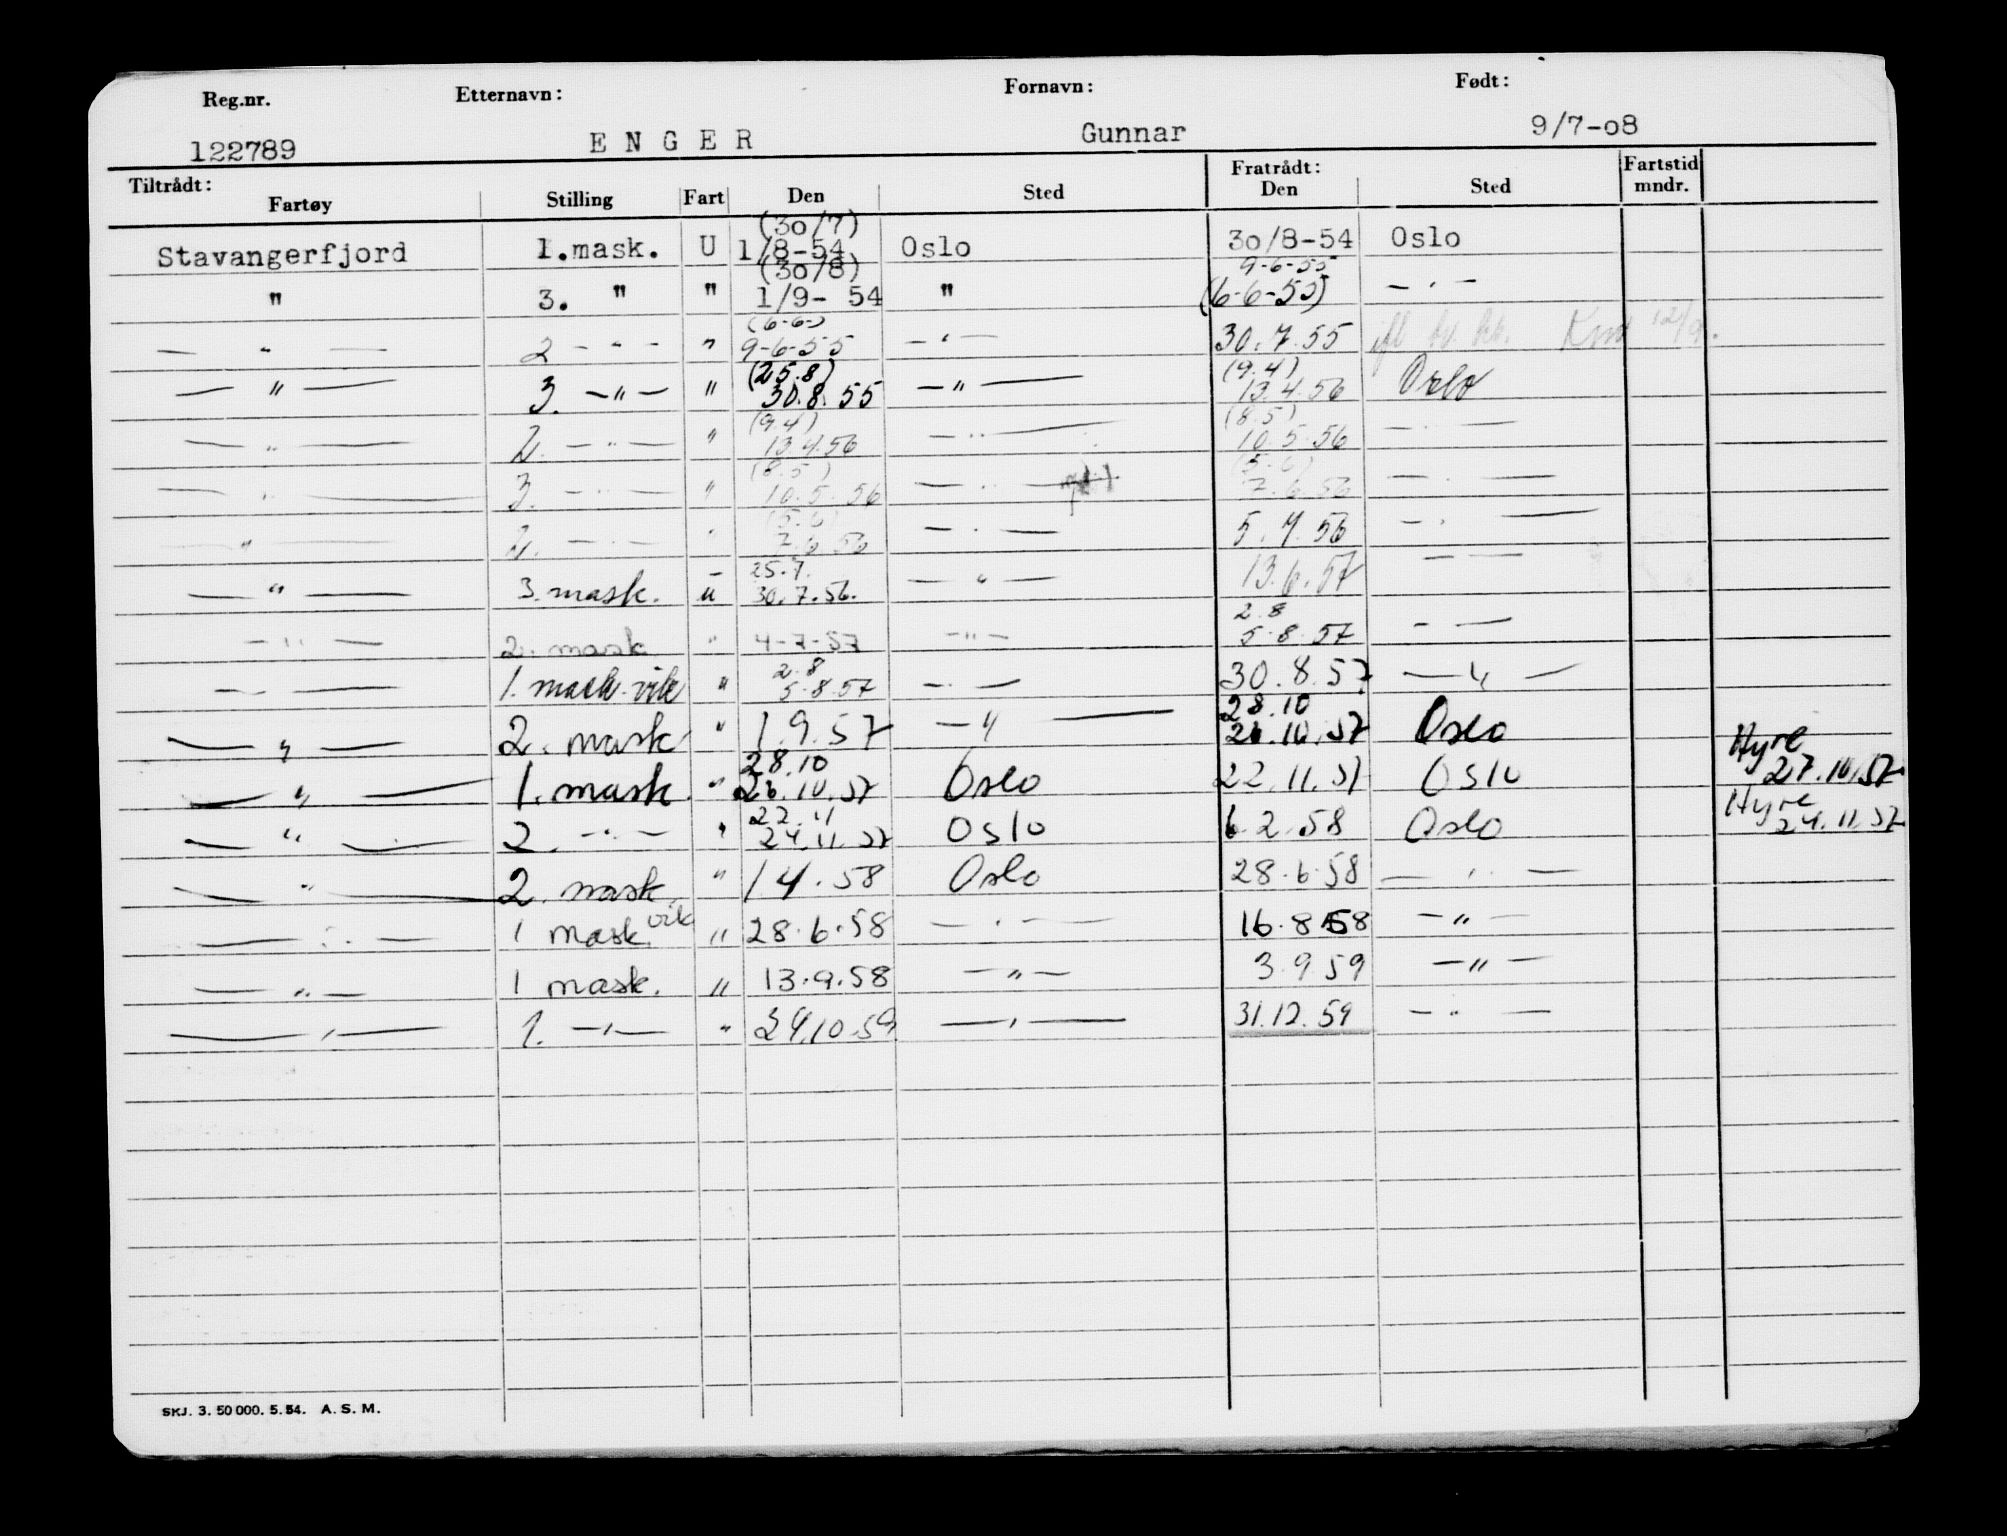 Reg.nr. Etternavn: Fornavn: Født:
122789 E N G E R Gunnar 9/7-o8
Tiltrådt: Fratrådt: Fartstid
Fartøy Stilling Fart Den Sted Den Sted mndr.
(3o/7)
Stavangerfjord 1.mask. U 1/8-54 Oslo 3o/8-54 Oslo
(3o/8) 9-6-55
" 3. " " 1/9- 54 " (6-6-55) — " —
(6-6-)
— " — 2 - " - " 9-6-55 — " — 30.7.55 12/9.
(25.8) (9.4)
— " — 3. — " — " 30.8.55 — " — 13.4.56 Oslo
(9.4) (8.5)
— " — 2. — " — " 13.4.56 — " — 10.5.56 — " —
(8.5) (5.6)
— " — 3. — " — " 10.5.56 — " — 7.6.56 — " —
(5.6)
— " — 2. — " — " 7.6.56 — " — 5.7.56 — " —
25.7.
— " — 3. mask. u 30.7.56. — " — 13.6.57 — —
2.8
— " — 2. mask " 4-7-57 — " — 5.8.57 — —
2.8
— " — 1. mask. vik " 5.8.57 — " — 30.8.57 — " —
28.10
— " — 2. mask " 1.9.57 — " — 26.10.57 Oslo
28.10 Hyre
— " — 1. mask. " 26.10.57 Oslo 22.11.57 Oslo 27.10.57
22.11 Hyre
— " — 2. — " — " 24.11.57 Oslo 6.2.58 Oslo 24.11.57
— " — 2. mask. " 1.4.58 Oslo 28.6.58 — " —
— " — 1 mask. vik " 28.6.58 — " — 16.8.58 — " —
— " — 1 mask. " 13.9.58 — " — 3.9.59 — " —
— " — 1. — " — " 24.10.59 — " — 31.12.59 — " —
SKJ. 3. 50 000. 5. 54. A. S. M.